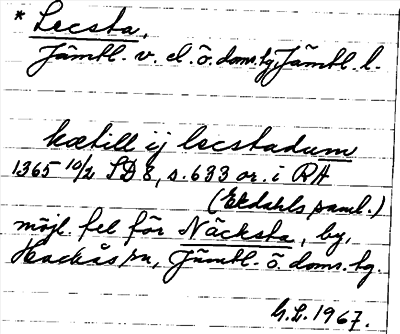 * Lecsta,
Jämtl. v. el. ö. doms.tg, Jämtl. l.
kætill ij lecstadum
1365 10/2 SD 8, s. 633 or. i RA
(Ekdahls saml.)
möjl. fel för Näcksta, by,
Hackås sn, Jämtl. ö. doms. tg.
G.L. 1967.